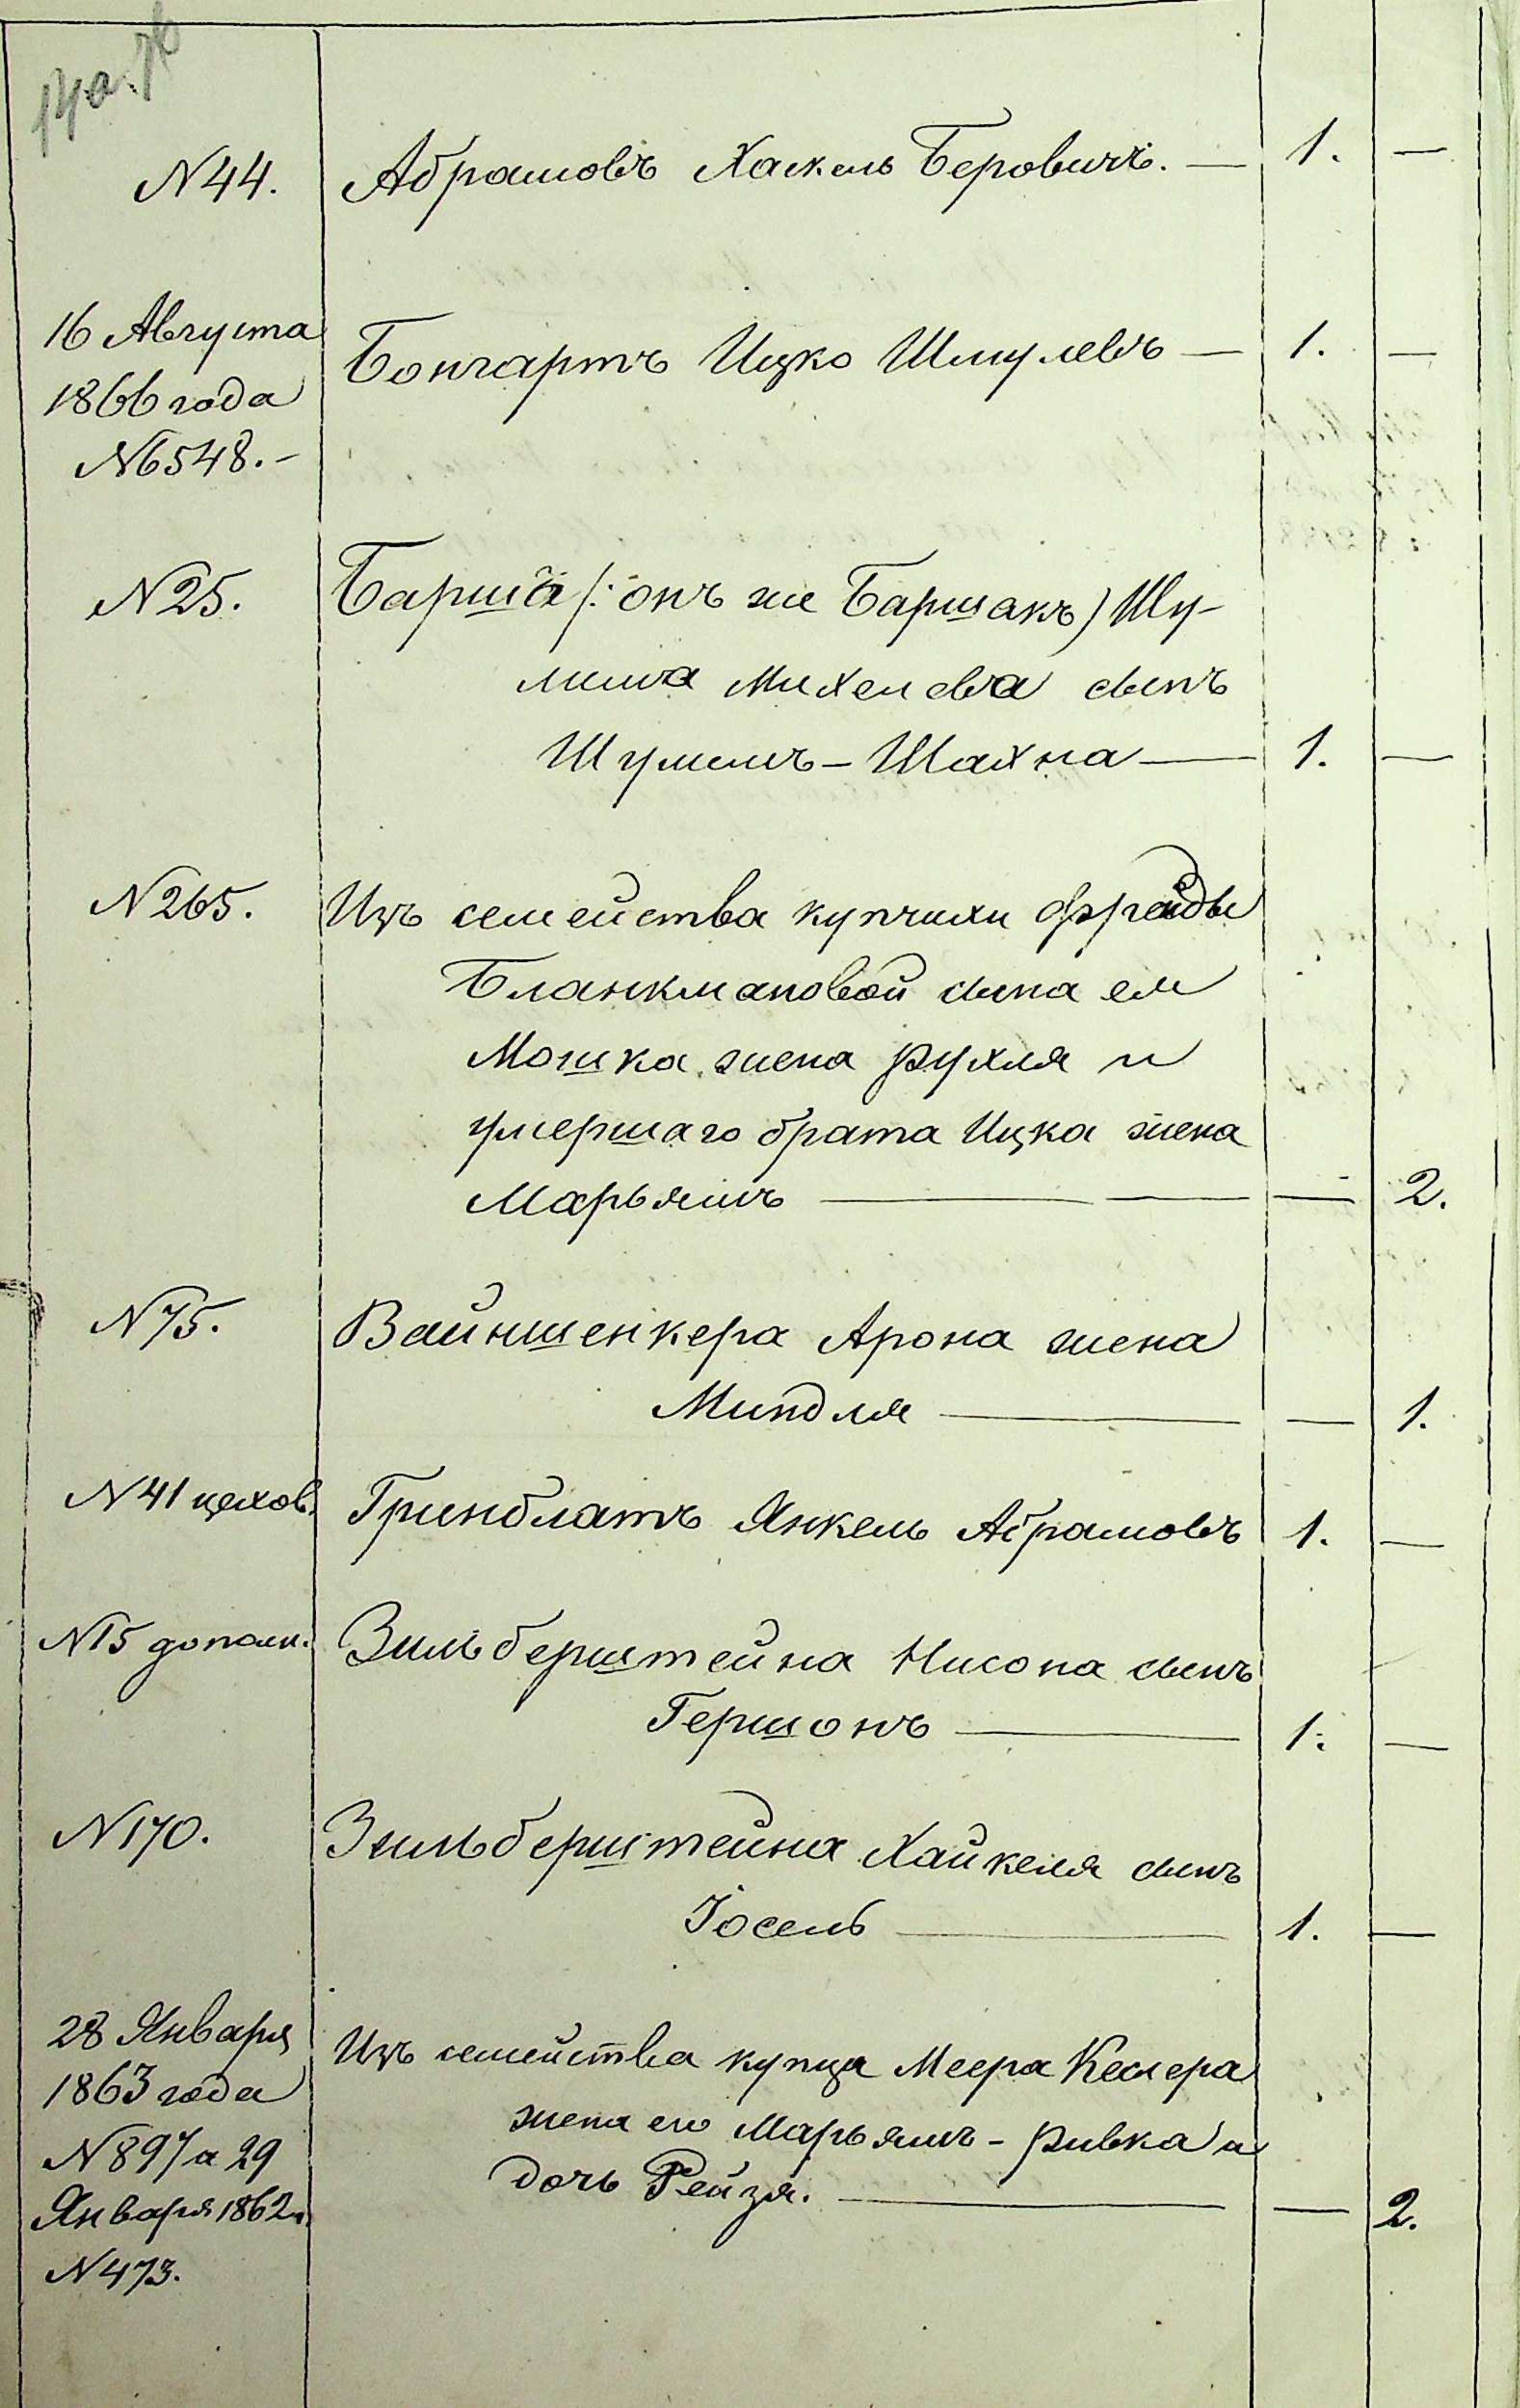 N 44. Абрамовъ Хаскель Беровичъ. — 1. —
16 Августа
1866 года
N 6548. —
Бонгартъ Ицко Шмулевъ — 1. —
N 25. Барша (: онъ же Баршакъ) Шу-
лима Михелева сынъ
Шулимъ - Шахна — 1. —
N 265. Изъ семейства купчихи Фрейды
Бланкмановой сына ея
Мошка жена Рухля и
умершаго брата Ицка жена
Марьямъ — — — 2.
N 75. Вайншенкера Арона жена
Миндля — — 1.
N 41 цехов. Гринблатъ Янкель Абрамовъ 1. —
N 15 дополн. Зильберштейна Нисона сынъ
Гершонъ — 1. —
N 170. Зильберштейна Хайкеля сынъ
Іосель — 1. —
28 Января
1863 года
N 897 и 29
Января 1862 г.
N 473.
Изъ семейства купца Меера Кеслера
жена его Марьямъ - Ривка и
дочь Рейзя. — — 2.